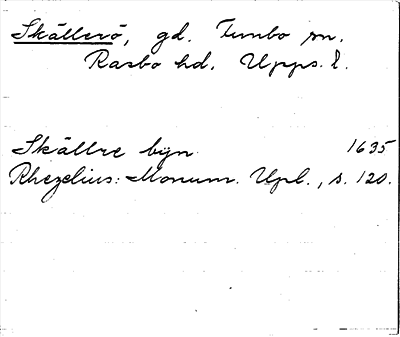 Skällerö, gd. Funbo sn.
Rasbo hd. Upps. l.
Skällre byn 1635
Rhezelius: Monum. Upl., s. 120.